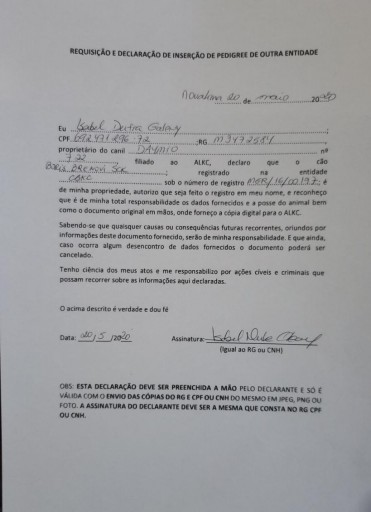 REQUISIÇÃO E DECLARAÇÃO DE INSERÇÃO DE PEDIGREE DE OUTRA ENTIDADE
20 de maio 2020
Eu Isabel
CPF ;RG
proprietário do canil nº
722 filiado ao ALKC, declaro que o cão
; registrado na entidade
CBKC sob o número de registro ; é
de minha propriedade, autorizo que seja feito o registro em meu nome, e reconheço
que é de minha total responsabilidade os dados fornecidos e a posse do animal bem
como o documento original em mãos, onde forneço a cópia digital para o ALKC.
Sabendo-se que quaisquer causas ou consequências futuras recorrentes, oriundos por
informações deste documento fornecido, serão de minha responsabilidade. E que ainda,
caso ocorra algum desencontro de dados fornecidos o documento poderá ser
cancelado.
Tenho ciência dos meus atos e me responsabilizo por ações cíveis e criminais que
possam recorrer sobre as informações aqui declaradas.
O acima descrito é verdade e dou fé
Data: 20/5/2020 Assinatura: Isabel
(Igual ao RG ou CNH)
OBS: ESTA DECLARAÇÃO DEVE SER PREENCHIDA A MÃO PELO DECLARANTE E SÓ É
VÁLIDA COM O ENVIO DAS CÓPIAS DO RG E CPF OU CNH DO MESMO EM JPEG, PNG OU
FOTO. A ASSINATURA DO DECLARANTE DEVE SER A MESMA QUE CONSTA NO RG CPF
OU CNH.